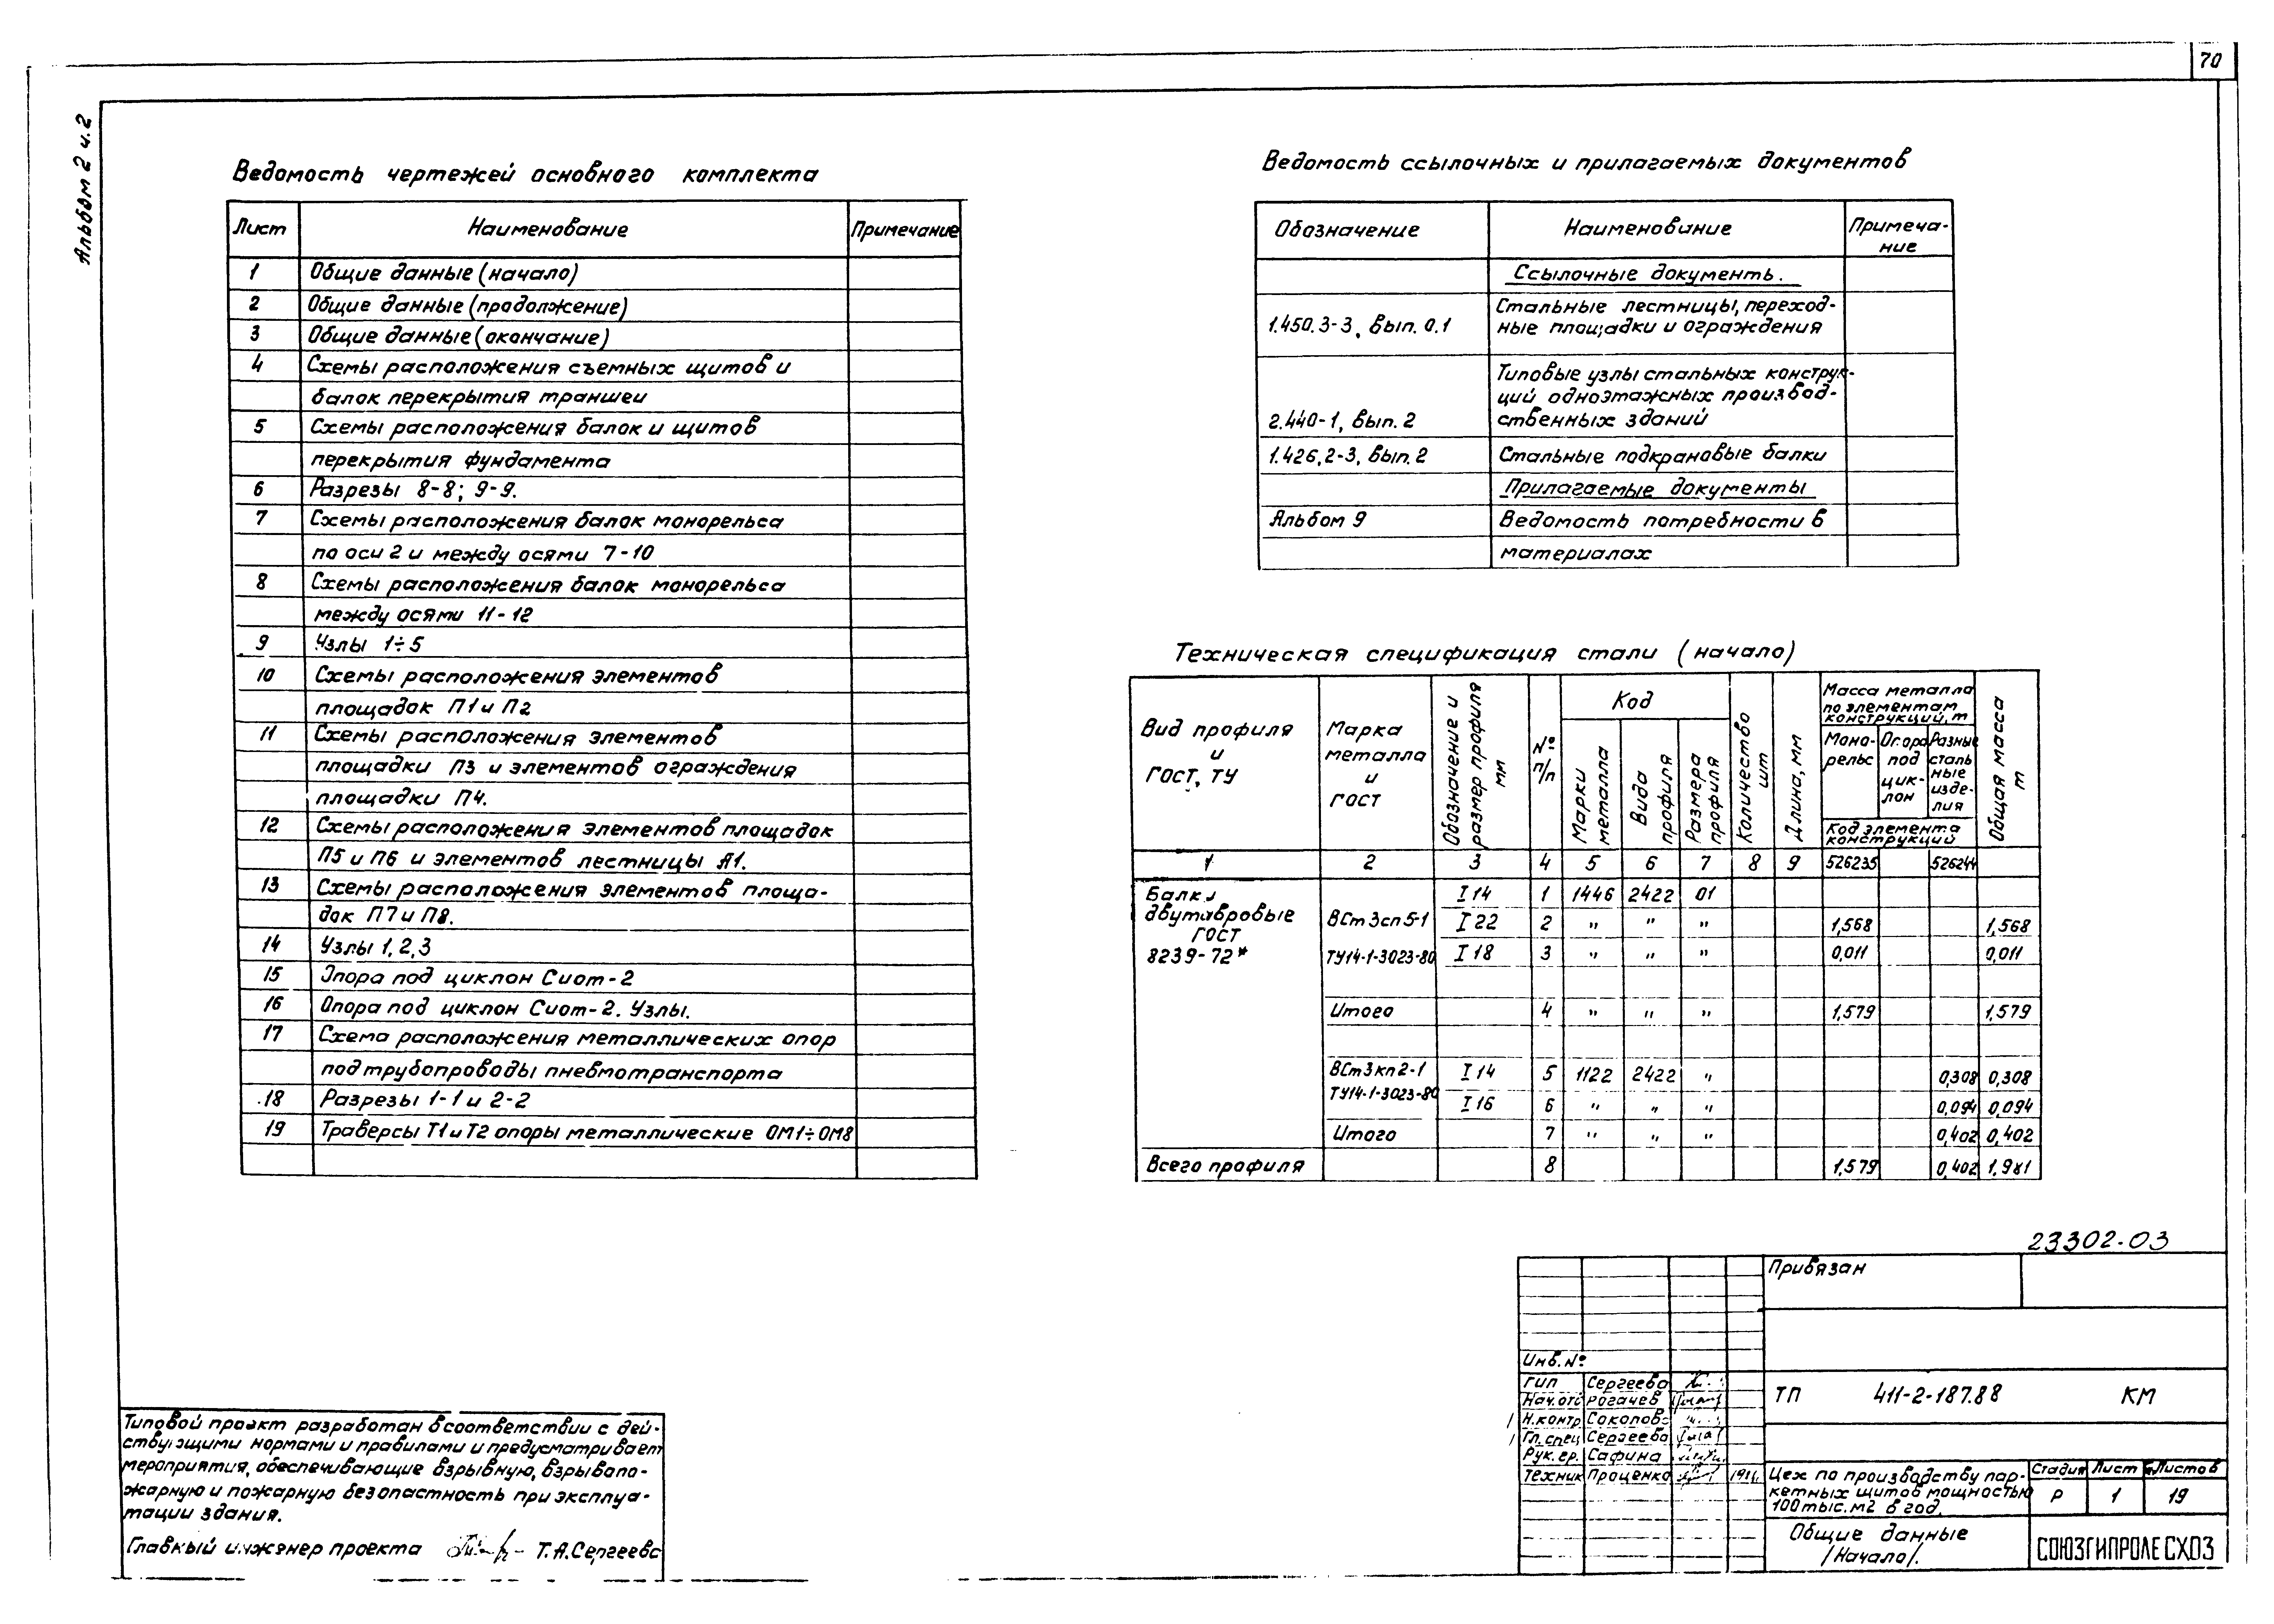 70
Альбом 2 ч.2
Ведомость чертежей основного комплекта
Лист Наименование Примечание
1 Общие данные (начало)
2 Общие данные (продолжение)
3 Общие данные (окончание)
4 Схемы расположения съемных щитов и
балок перекрытия траншеи
5 Схемы расположения балок и щитов
перекрытия фундамента
6 Разрезы 8-8; 9-9.
7 Схемы расположения балок монорельса
по оси 2 и между осями 7-10
8 Схемы расположения балок монорельса
между осями 11-12
9 Узлы 1÷5
10 Схемы расположения элементов
площадок П1 и П2
11 Схемы расположения элементов
площадки П3 и элементов ограждения
площадки П4.
12 Схемы расположения элементов площадок
П5 и П6 и элементов лестницы Л1.
13 Схемы расположения элементов площа-
док П7 и П8.
14 Узлы 1, 2, 3
15 Опора под циклон Сиот-2
16 Опора под циклон Сиот-2. Узлы.
17 Схема расположения металлических опор
под трубопроводы пневмотранспорта
18 Разрезы 1-1 и 2-2
19 Траверсы Т1 и Т2 опоры металлические ОМ1÷ОМ8
Ведомость ссылочных и прилагаемых документов
Обозначение Наименование Примеча-
ние
Ссылочные документь.
Стальные лестницы, переход-
1.450.3-3, вып. 0.1 ные площадки и ограждения
Типовые узлы стальных конструк-
ций одноэтажных производ-
2.440-1, вып. 2 ственных зданий
1.426,2-3, вып. 2 Стальные подкрановые балки
Прилагаемые документы
Альбом 9 Ведомость потребности в
материалах
Техническая спецификация стали (начало)
Вид профиля
и
ГОСТ, ТУ
Марка
металла
и
ГОСТ
Обозначение и
размер профиля
мм
№
п/п
Код
Марки
металла
Вида
профиля
Размера
профиля
Количество
шт
Длина, мм
Масса металла
по элементам
конструкций, т
Моно-
рельс
Опора
под
цик-
лон
Разные
сталь
ные
изде-
лия
Код элемента
конструкций
Общая масса
т
1 2 3 4 5 6 7 8 9 526235 526244
Балки
двутавровые
ГОСТ
8239-72*
I 14 1 1446 2422 01
ВСт3сп5-1 I 22 2 " " " 1,568 1,568
ТУ14-1-3023-80 I 18 3 " " " 0,011 0,011
Итого 4 " " " 1,579 1,579
ВСт3кп2-1 I 14 5 1122 2422 " 0,308 0,308
ТУ14-1-3023-80 I 16 6 " " " 0,094 0,094
Итого 7 " " " 0,402 0,402
Всего профиля 8 1,579 0,402 1,981
23302-03
Привязан
Инв. №
ГИП Сергеева
Нач.отд Рогачев
Н.контр Соколова
Гл.спец Сергеева
Рук.гр. Сафина
Техник Проценко
ТП 411-2-187.88 КМ
Цех по производству пар-
кетных щитов мощностью
100 тыс. м2 в год.
Стадия Лист Листов
Р 1 19
Общие данные
/Начало/.
СОЮЗГИПРОЛЕСХОЗ
Типовой проект разработан в соответствии с дей-
ствующими нормами и правилами и предусматривает
мероприятия, обеспечивающие взрывную, взрывопо-
жарную и пожарную безопастность при эксплуа-
тации здания.
Главный инженер проекта Т.А.Сергеева